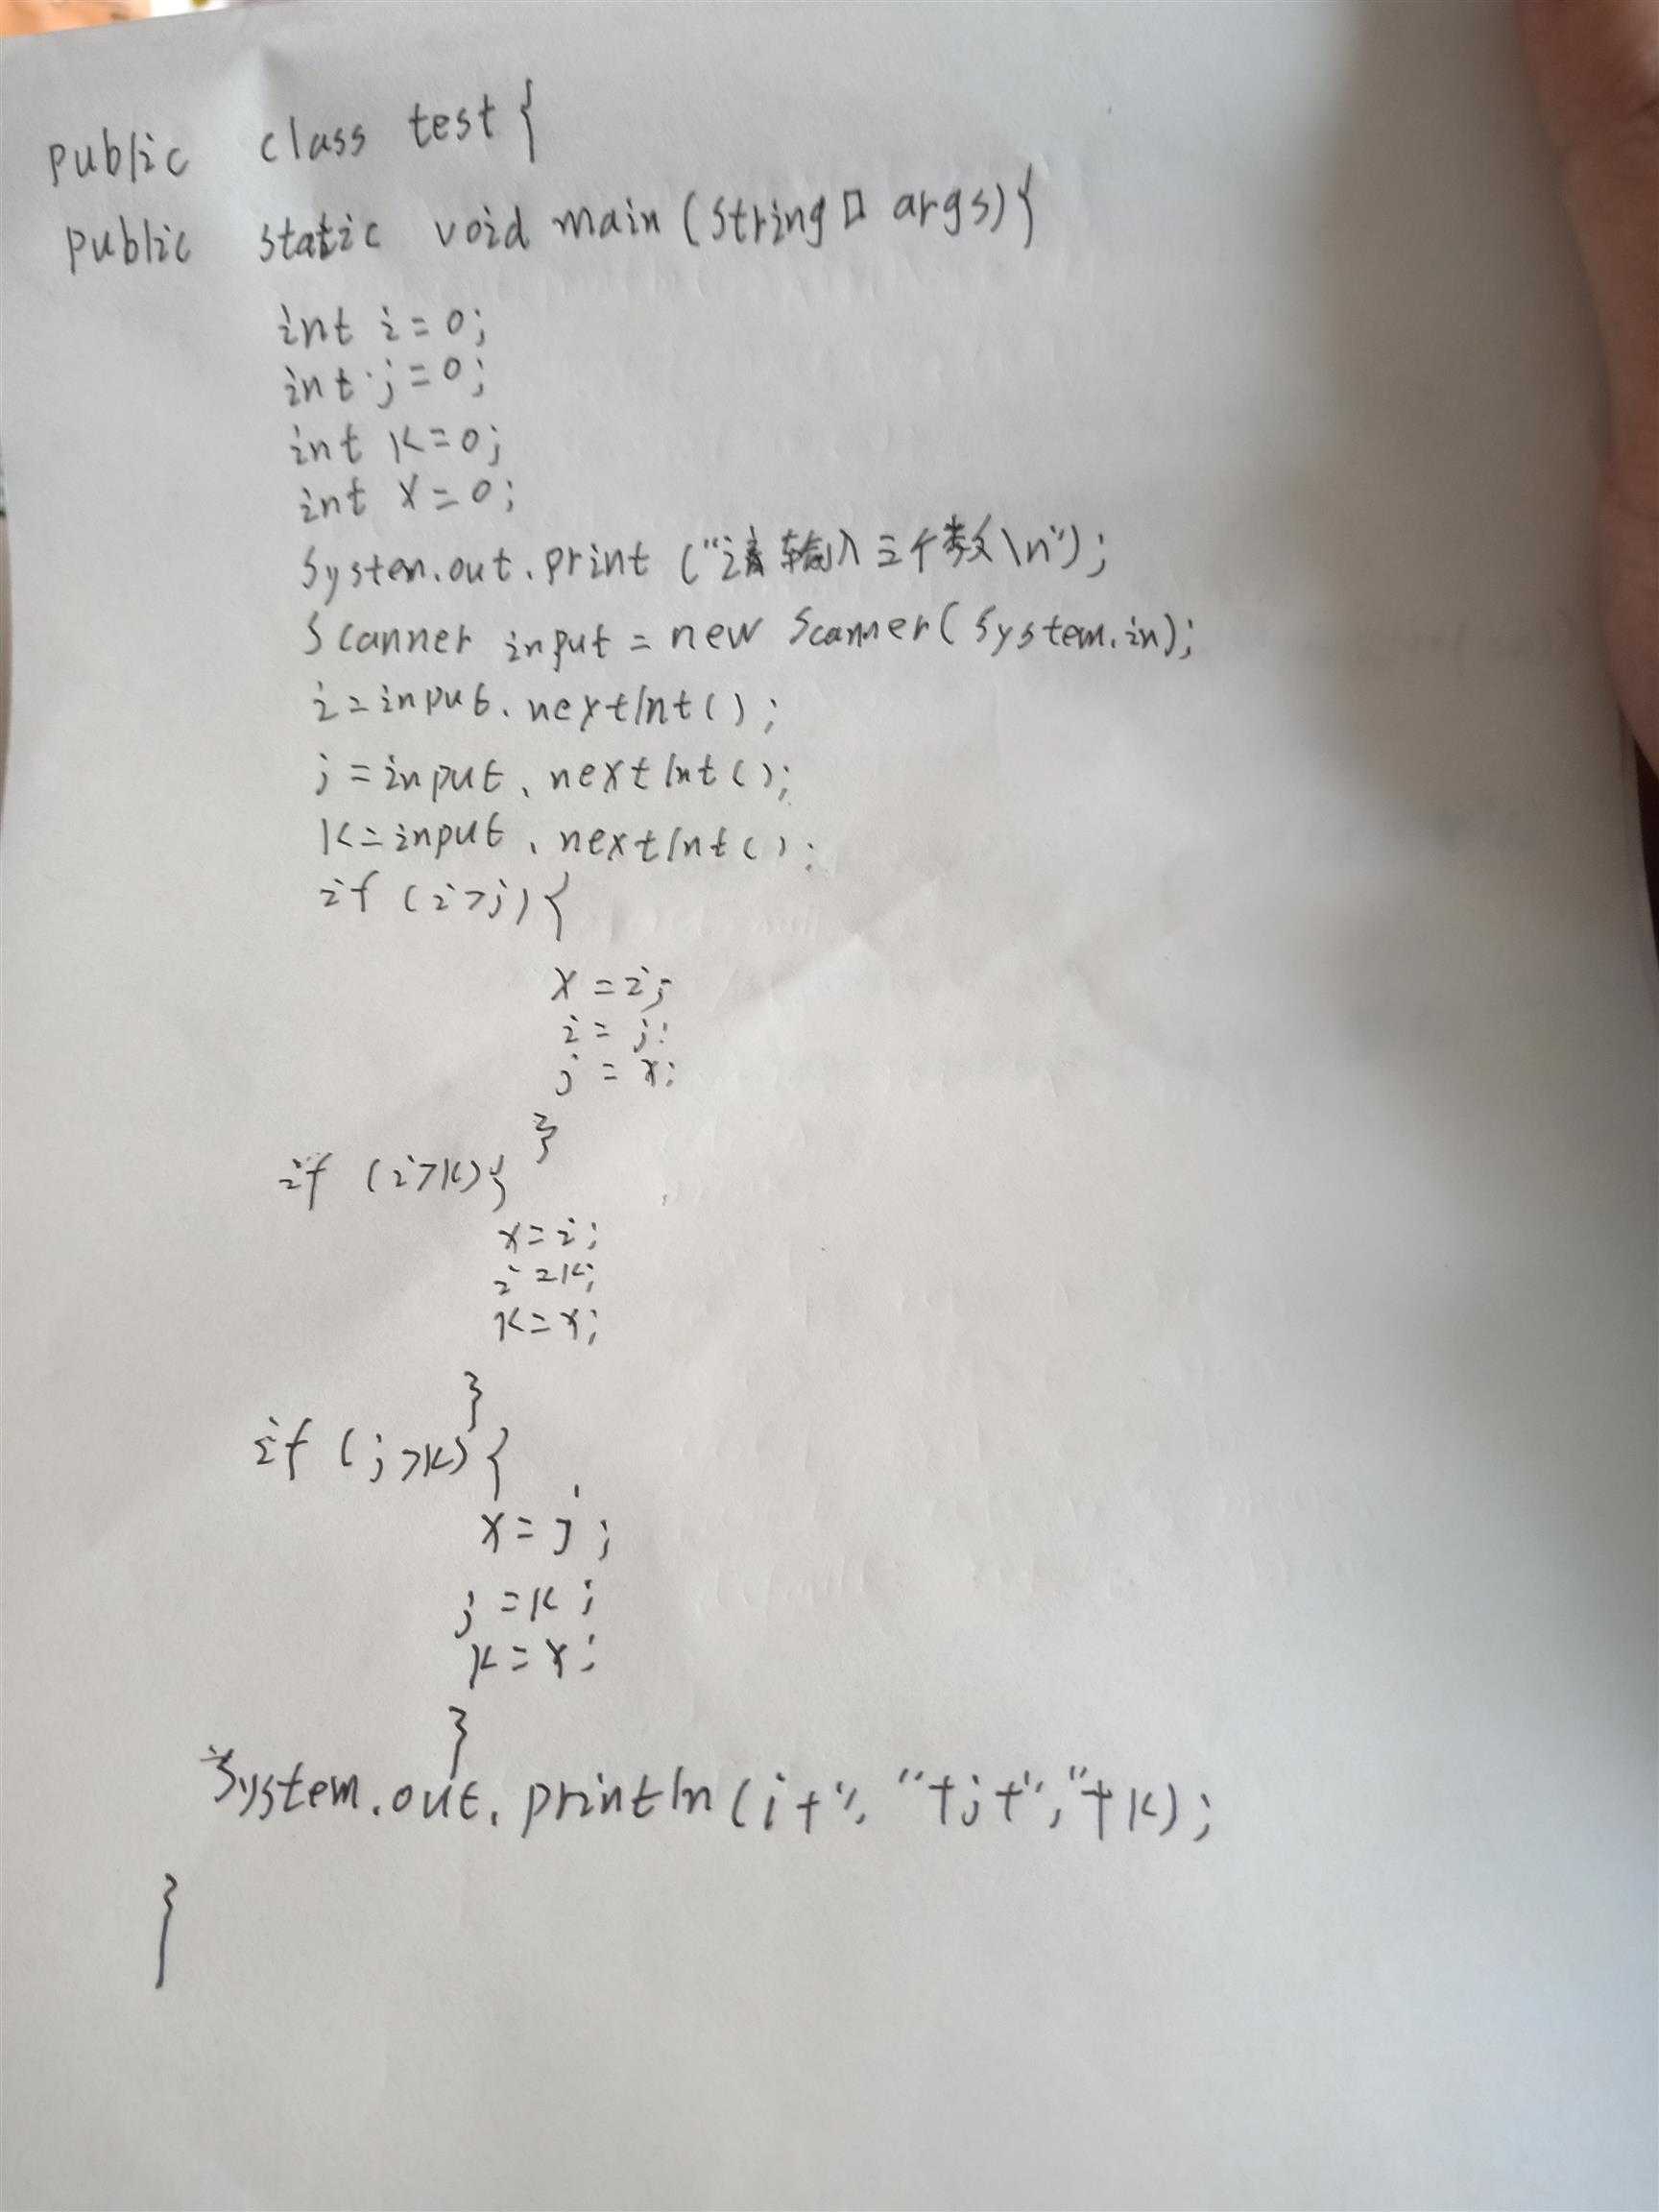 public class test{
public static void main(String[] args){
int i=0;
int j=0;
int k=0;
int x=0;
System.out.print("请输入三个数\n");
Scanner input = new Scanner(System.in);
i=input.nextInt();
j=input.nextInt();
k=input.nextInt();
if (i>j){
x=i;
i=j;
j=x;
}
if (i>k){
x=i;
i=k;
k=x;
}
if (j>k){
x=j;
j=k;
k=x;
}
System.out.println(i+", "+j+", "+k);
}